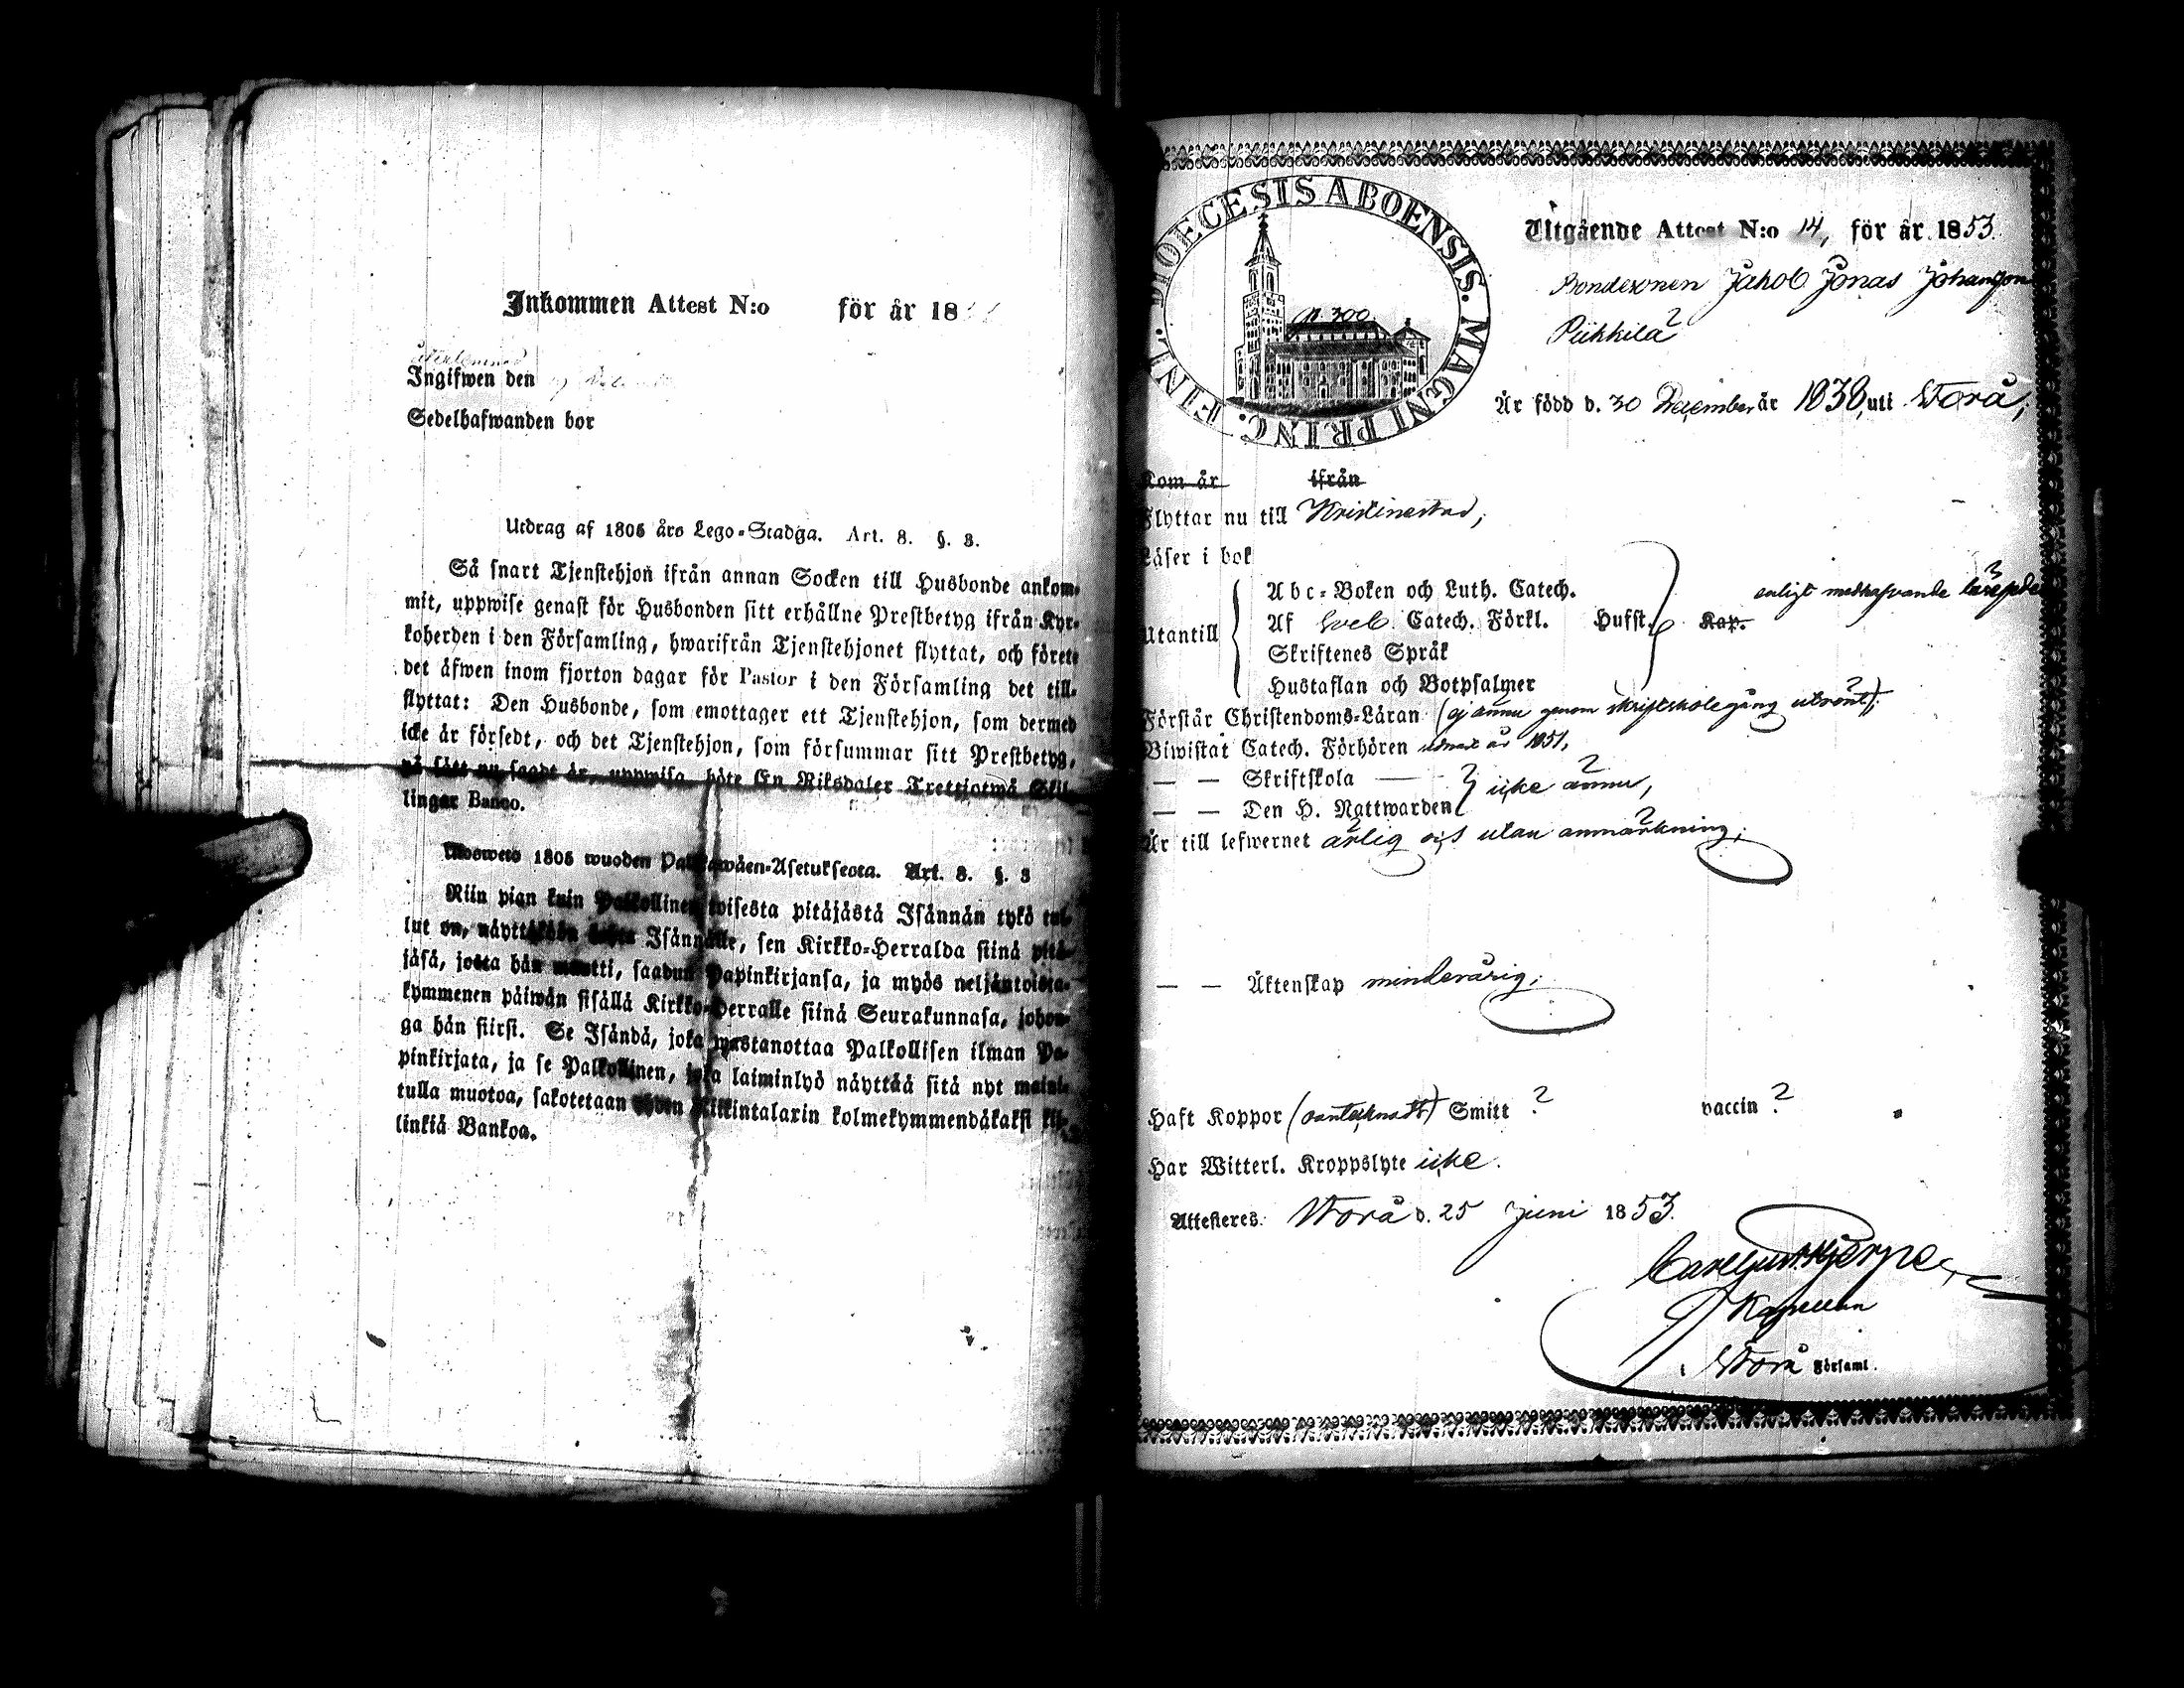 Inkommen Attest N:o för år 18
Ingifwen den
Sedelhafwanden bor
Utdrag af 1805 års Lego-Stadga. Art. 8. §. 3.
Så snart Tjenstehjon ifrån annan Socken till Husbonde ankom-
mit, uppwise genast för Husbonden sitt erhållne Prestbetyg ifrån Kyr-
koherden i den Församling, hwarifrån Tjenstehjonet flyttat, och förete
det äfwen inom fjorton dagar för Pastor i den Församling det till-
flyttat: Den Husbonde, som emottager ett Tjenstehjon, som dermed
icke är försedt, och det Tjenstehjon, som försummar sitt Prestbetyg,
på sätt nu sagdt är, uppwisa, böte En Riksdaler Trettjotwå Skil-
lingar Banco.
Ulosweto 1805 wuoden Palkkawäen-Asetuksesta. Art. 8. §. 3
Niin pian kuin Palkollinen toisesta pitäjästä Isännän tykö tul-
lut on, näyttäkään Isännälle, sen Kirkko-Herralda siinä pitä-
jäsä, josta hän muutti, saadun Papinkirjansa, ja myös neljäntoista-
kymmenen päiwän sisällä Kirkko-Herralle siinä Seurakunnasa, johon-
ga hän siirsi. Se Isändä, joka wastanottaa Palkollisen ilman Pa-
pinkirjata, ja se Palkollinen, joka laiminlyö näyttää sitä nyt maini-
tulla muotoa, sakotetaan yhden Riikintalarin kolmekymmendäkaksi kil-
linkiä Bankoa.
DIOECESIS ABOENSIS. MAGNI PRINC. FINL.
p. 300
Utgående Attest N:o 14, för år 1853.
Bondesonen Jakob Jonas Johansson
Piikkilä
Är född d. 30 December år 1838, uti Storå;
Kom år ifrån
Flyttar nu till Kristinestad;
Läser i bok
Abc-Boken och Luth. Catech.
enligt medhafvande
Utantill Af Sveb. Catech. Förkl. Husst. Kap.
Skriftenes Språk
Hustaflan och Botpsalmer
Förstår Christendoms-Läran (ej ännu genom skriftskolegång utrönt);
Biwistat Catech. Förhören år 1851,
— — Skriftskola —
icke ännu,
— — Den H. Nattwarden
Är till lefwernet ärlig och utan anmärkning;
— — Äktenskap minderårig;
Haft Koppor (oantecknadt) Smitt ? vaccin ?
Har Witterl. Kroppslyte icke.
Attesteres. Storå d. 25 Juni 1853.
Kapellan
i Storå Församl.